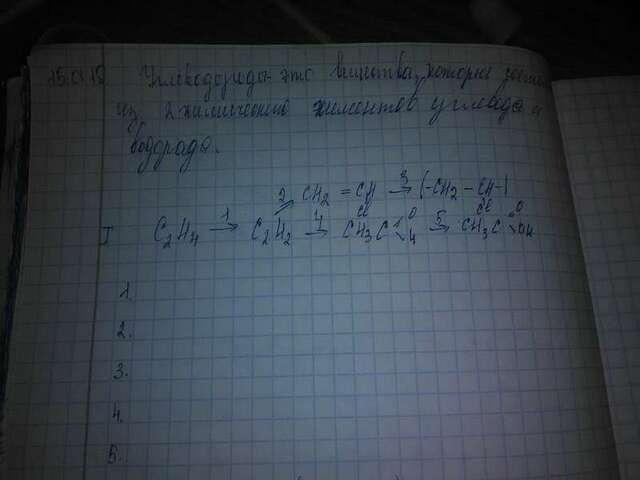 Углеводорода это вещества, которые состоят
из 2 химических элементов углевода и
водорада.
2 CH2 = CH 3→ (-CH2 - CH-)
Cl Cl
I C2H4 1→ C2H2 4→ CH3C O H 5→ CH3C O OH
1.
2.
3.
4.
5.